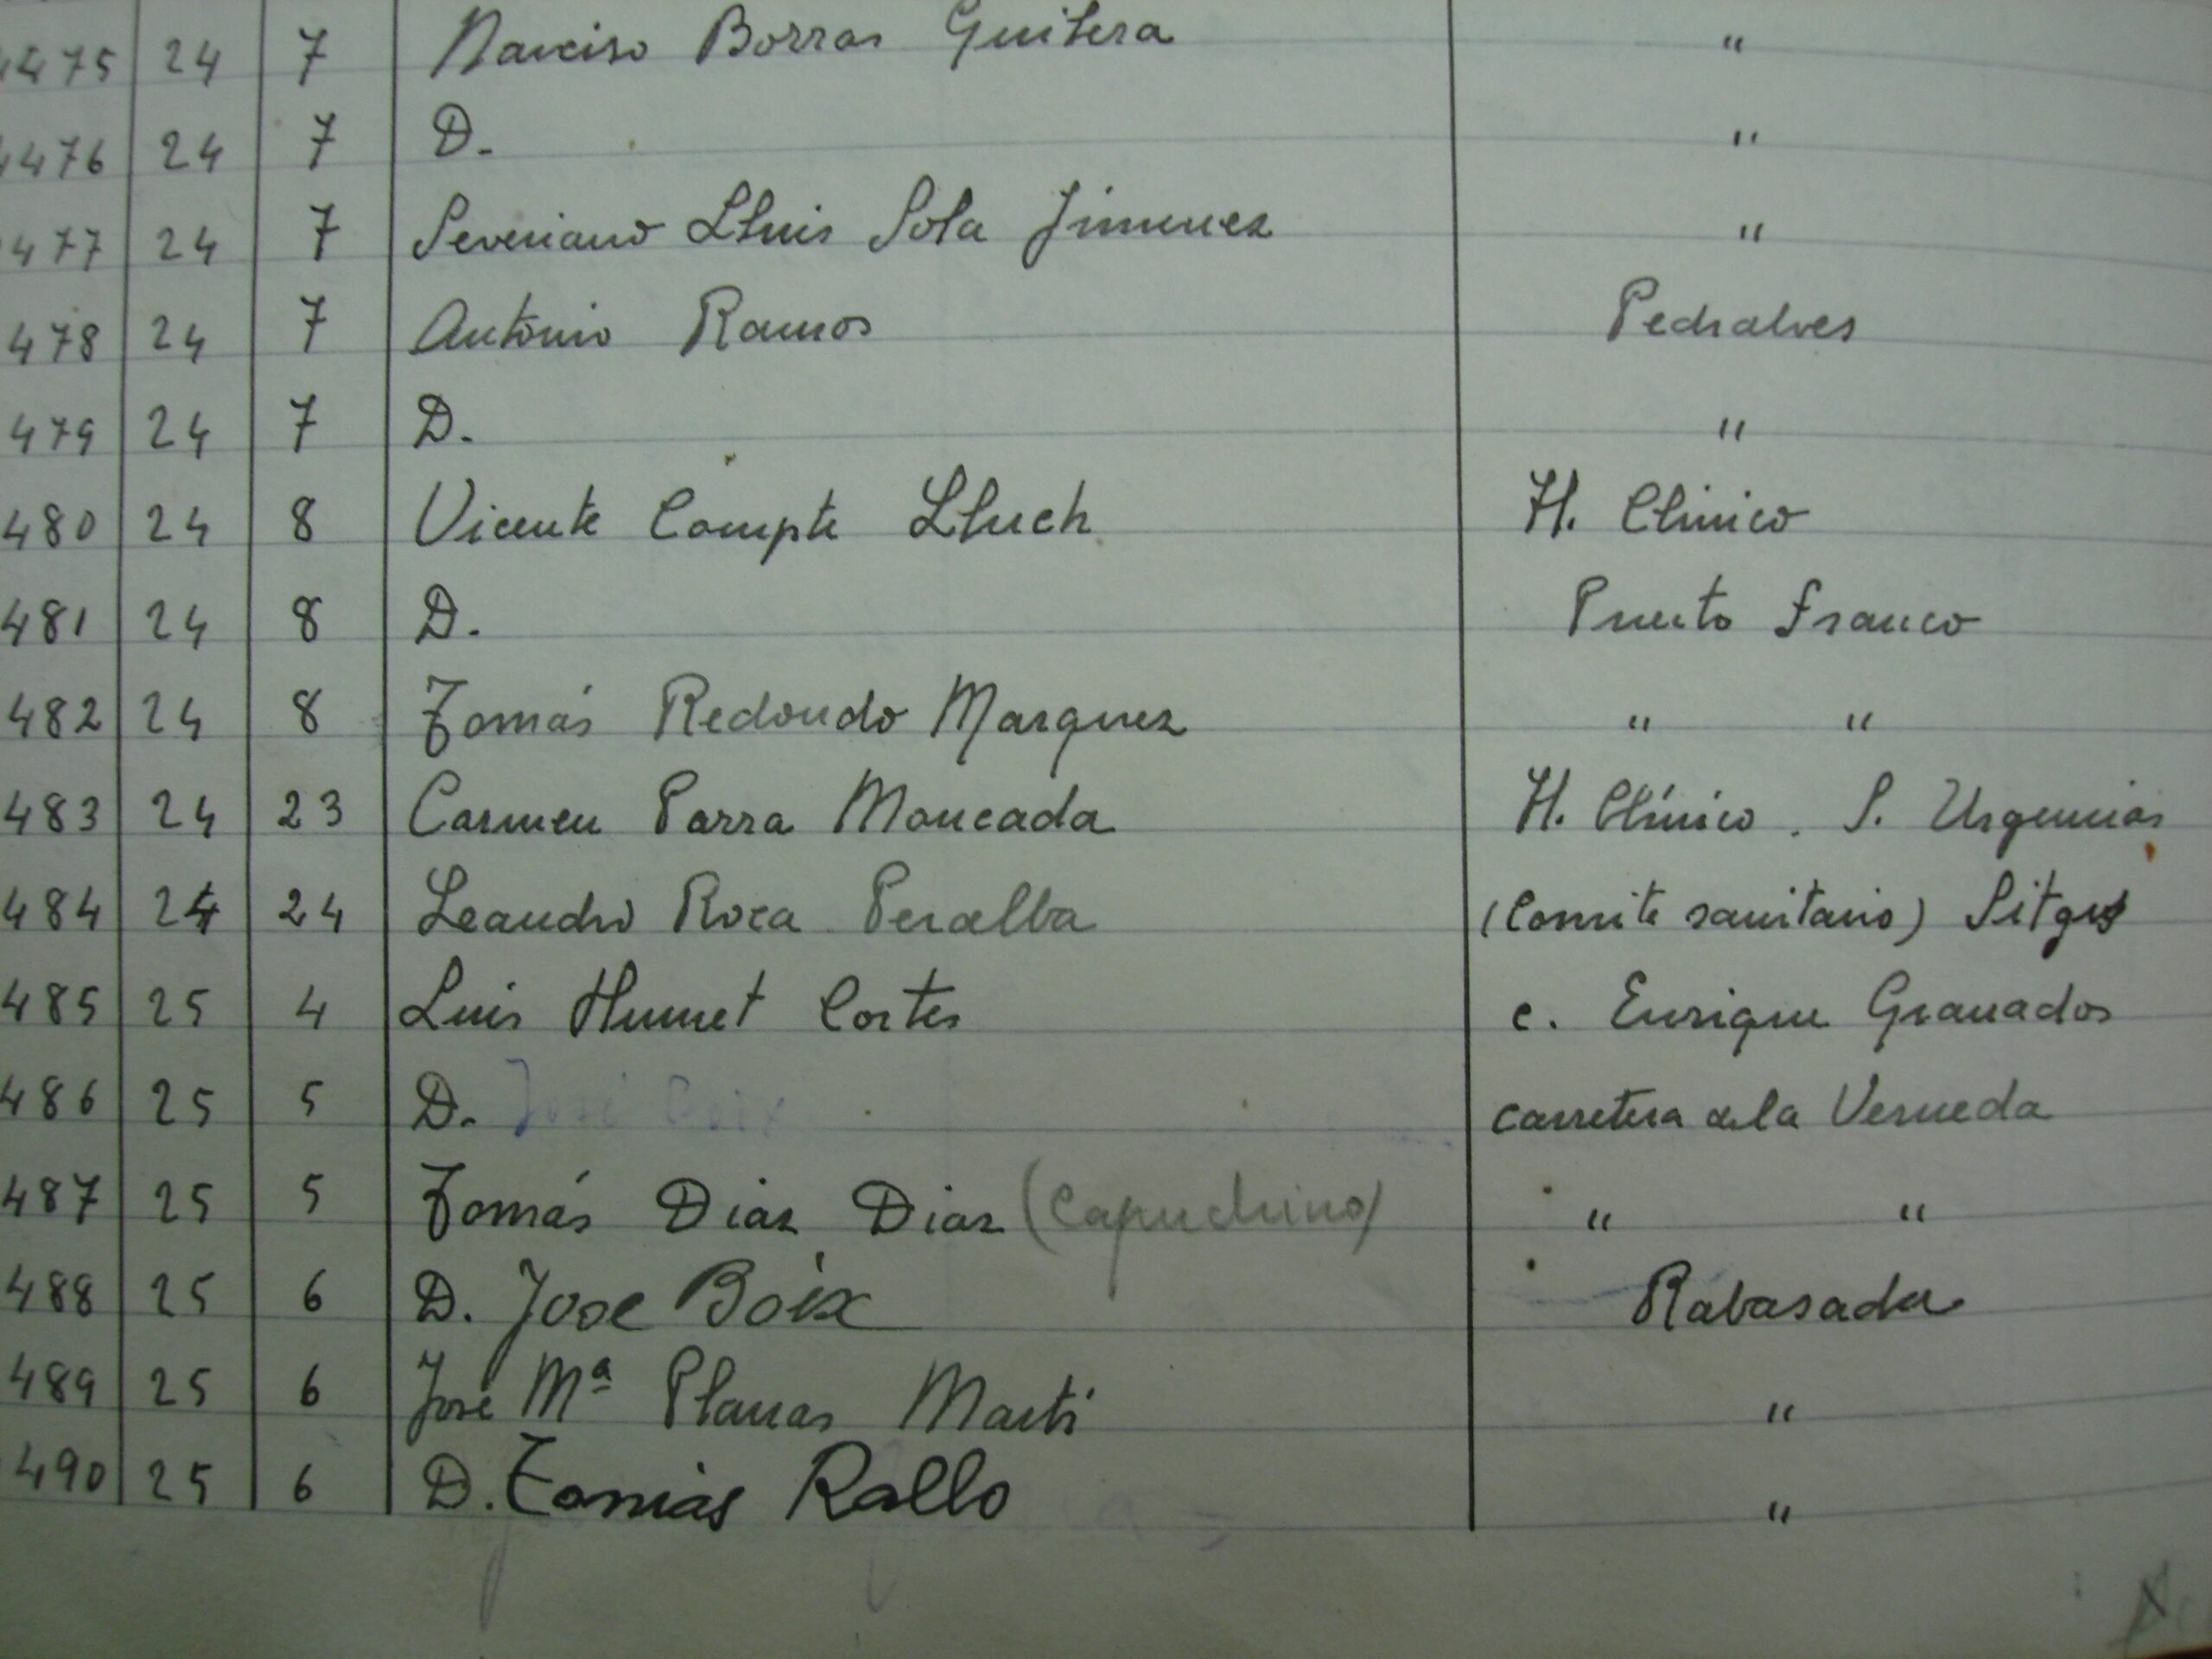 4475 24 7 Narciso Borras Guitera "
4476 24 7 D. "
477 24 7 Severiano Lluis Sola Jimenez "
478 24 7 Antonio Ramos Pedralves
479 24 7 D. "
480 24 8 Vicente Compte Lluch H. Clinico
481 24 8 D. Puerto Franco
482 24 8 Tomás Redondo Marquez " "
483 24 23 Carmen Parra Moncada H. Clínico. S. Urgencias
484 24 24 Leandro Roca Peralba (Comite sanitario) Sitges
485 25 4 Luis Humet Cortes c. Enrique Granados
486 25 5 D. José Boix carretera de la Verneda
487 25 5 Tomás Diaz Diaz (Capuchino) " "
488 25 6 D. Jose Boix Rabasada
489 25 6 José Mª Planas Marti "
490 25 6 D. Tomás Rallo "